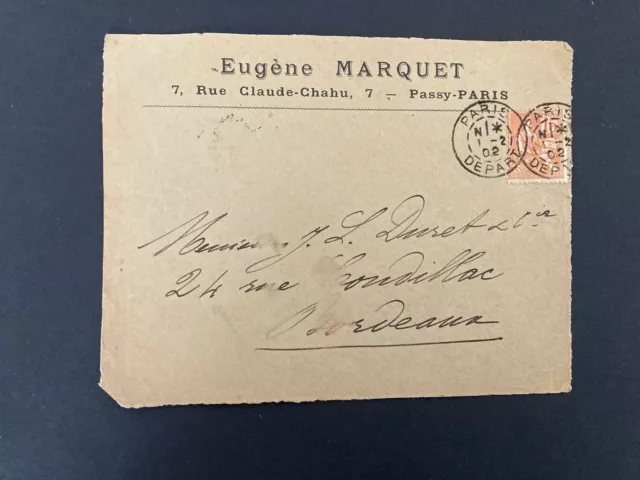 Eugène MARQUET
7, Rue Claude-Chahu, 7 — Passy-PARIS
PARIS
N 1 *
1 -2
02
DEPART
PARIS
N *
02
DEP
J. L. Duret & Cie
24 rue Condillac
Bordeaux